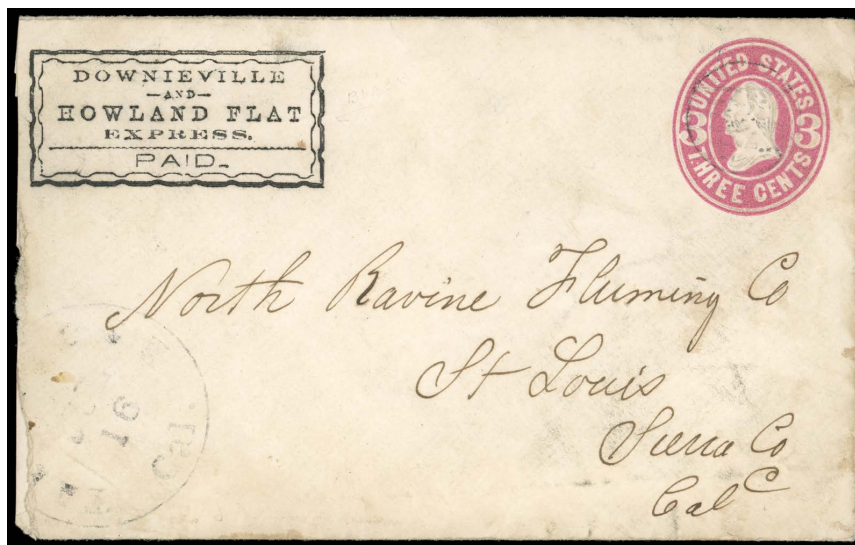 DOWNIEVILLE
—AND—
HOWLAND FLAT
EXPRESS.
PAID.
UNITED STATES
3 3
THREE CENTS
North Ravine Fluming Co
St Louis
Sierra Co
Cal
16
Cal.